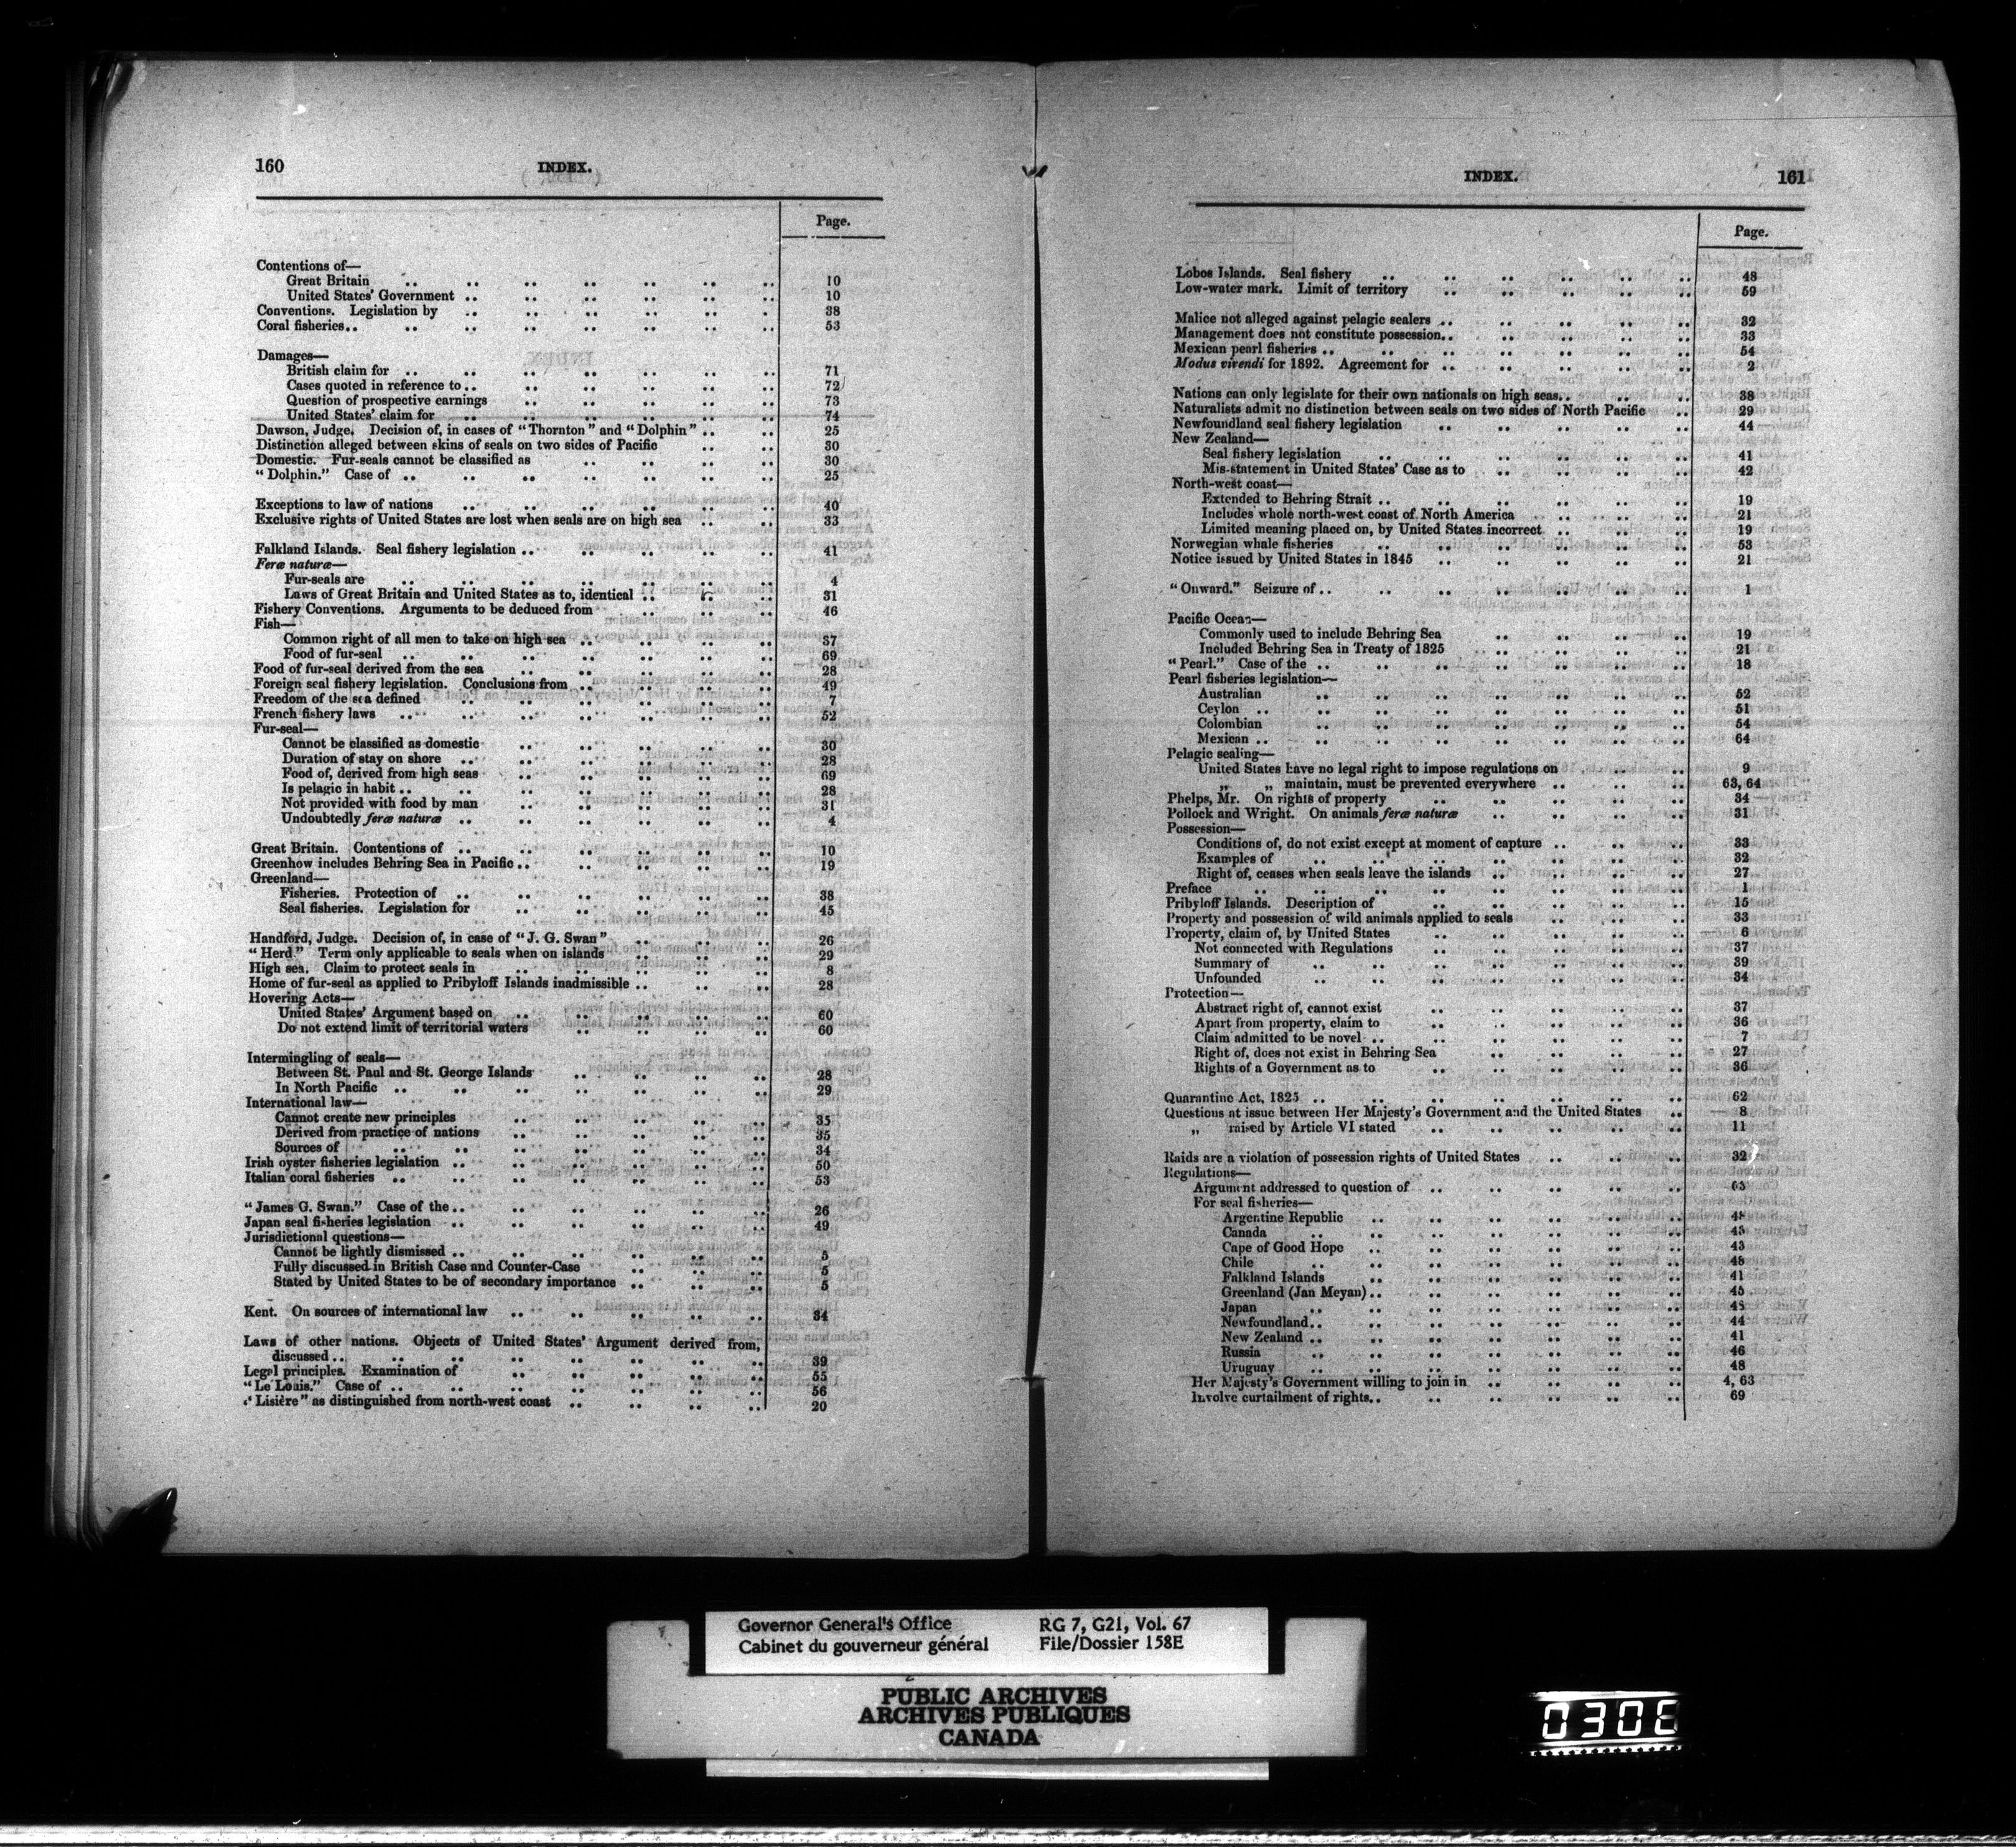 160
INDEX.
Page.
Contentions of—
Great Britain .. .. .. .. .. .. .. 10
United States' Government .. .. .. .. .. .. 10
Conventions. Legislation by .. .. .. .. .. . 38
Coral fisheries.. .. .. .. .. .. .. .. 53
Damages—
British claim for .. .. .. .. .. .. .. 71
Cases quoted in reference to .. .. .. .. .. .. 72
Question of prospective earnings .. .. .. .. .. 73
United States' claim for .. .. .. .. .. .. 74
Dawson, Judge. Decision of, in cases of "Thornton" and "Dolphin" .. .. 25
Distinction alleged between skins of seals on two sides of Pacific .. .. 30
Domestic. Fur-seals cannot be classified as .. .. .. .. 30
"Dolphin." Case of .. .. .. .. .. .. .. 25
Exceptions to law of nations .. .. .. .. .. .. 40
Exclusive rights of United States are lost when seals are on high sea .. .. 33
Falkland Islands. Seal fishery legislation .. .. .. .. .. 41
Feræ naturæ—
Fur-seals are .. .. .. .. .. .. .. 4
Laws of Great Britain and United States as to, identical .. .. .. 31
Fishery Conventions. Arguments to be deduced from .. .. .. 46
Fish—
Common right of all men to take on high sea .. .. .. .. 37
Food of fur-seal .. .. .. .. .. .. .. 69
Food of fur-seal derived from the sea .. .. .. .. .. 28
Foreign seal fishery legislation. Conclusions from .. .. .. .. 49
Freedom of the sea defined .. .. .. .. .. .. 7
French fishery laws .. .. .. .. .. .. .. 52
Fur-seal—
Cannot be classified as domestic .. .. .. .. .. 30
Duration of stay on shore .. .. .. .. .. .. 28
Food of, derived from high seas .. .. .. .. .. 69
Is pelagic in habit .. .. .. .. .. .. .. 28
Not provided with food by man .. .. .. .. .. 31
Undoubtedly feræ naturæ .. .. .. .. .. .. 4
Great Britain. Contentions of .. .. .. .. .. .. 10
Greenhow includes Behring Sea in Pacific .. .. .. .. .. 19
Greenland—
Fisheries. Protection of .. .. .. .. .. .. 38
Seal fisheries. Legislation for .. .. .. .. .. 45
Handford, Judge. Decision of, in case of "J. G. Swan" .. .. .. 26
"Herd." Term only applicable to seals when on islands .. .. .. 29
High sea. Claim to protect seals in .. .. .. .. .. 8
Home of fur-seal as applied to Pribyloff Islands inadmissible .. .. .. 28
Hovering Acts—
United States' Argument based on .. .. .. .. .. 60
Do not extend limit of territorial waters .. .. .. .. 60
Intermingling of seals—
Between St. Paul and St. George Islands .. .. .. .. 28
In North Pacific .. .. .. .. .. .. .. 29
International law—
Cannot create new principles .. .. .. .. .. 35
Derived from practice of nations .. .. .. .. .. 35
Sources of .. .. .. .. .. .. .. 34
Irish oyster fisheries legislation .. .. .. .. .. .. 50
Italian coral fisheries .. .. .. .. .. .. .. 53
"James G. Swan." Case of the .. .. .. .. .. .. 26
Japan seal fisheries legislation .. .. .. .. .. .. 49
Jurisdictional questions—
Cannot be lightly dismissed .. .. .. .. .. .. 5
Fully discussed in British Case and Counter-Case .. .. .. 5
Stated by United States to be of secondary importance .. .. .. 5
Kent. On sources of international law .. .. .. .. .. 34
Laws of other nations. Objects of United States' Argument derived from,
discussed .. .. .. .. .. .. .. .. 39
Legal principles. Examination of .. .. .. .. .. 55
"Le Louis." Case of .. .. .. .. .. .. .. 56
"Lisière" as distinguished from north-west coast .. .. .. .. 20
INDEX.
161
Page.
Lobos Islands. Seal fishery .. .. .. .. .. .. 48
Low-water mark. Limit of territory .. .. .. .. .. 59
Malice not alleged against pelagic sealers .. .. .. .. .. 32
Management does not constitute possession.. .. .. .. .. 33
Mexican pearl fisheries .. .. .. .. .. .. .. 54
Modus vivendi for 1892. Agreement for .. .. .. .. .. 2
Nations can only legislate for their own nationals on high seas.. .. .. 38
Naturalists admit no distinction between seals on two sides of North Pacific .. 29
Newfoundland seal fishery legislation .. .. .. .. .. 44
New Zealand—
Seal fishery legislation .. .. .. .. .. .. 41
Mis-statement in United States' Case as to .. .. .. .. 42
North-west coast—
Extended to Behring Strait .. .. .. .. .. .. 19
Includes whole north-west coast of North America .. .. .. 21
Limited meaning placed on, by United States incorrect .. .. .. 19
Norwegian whale fisheries .. .. .. .. .. .. 53
Notice issued by United States in 1845 .. .. .. .. .. 21
"Onward." Seizure of .. .. .. .. .. .. .. 1
Pacific Ocean—
Commonly used to include Behring Sea .. .. .. .. 19
Included Behring Sea in Treaty of 1825 .. .. .. .. 21
"Pearl." Case of the .. .. .. .. .. .. .. 18
Pearl fisheries legislation—
Australian .. .. .. .. .. .. .. 52
Ceylon .. .. .. .. .. .. .. .. 51
Colombian .. .. .. .. .. .. .. 54
Mexican .. .. .. .. .. .. .. .. 64
Pelagic sealing—
United States have no legal right to impose regulations on .. .. .. 9
„ „ maintain, must be prevented everywhere .. .. .. 63, 64
Phelps, Mr. On rights of property .. .. .. .. .. 34
Pollock and Wright. On animals feræ naturæ .. .. .. .. 31
Possession—
Conditions of, do not exist except at moment of capture .. .. .. 33
Examples of .. .. .. .. .. .. .. 32
Right of, ceases when seals leave the islands .. .. .. .. 27
Preface .. .. .. .. .. .. .. .. 1
Pribyloff Islands. Description of .. .. .. .. .. 15
Property and possession of wild animals applied to seals .. .. .. 33
Property, claim of, by United States .. .. .. .. .. 6
Not connected with Regulations .. .. .. .. .. 37
Summary of .. .. .. .. .. .. .. 39
Unfounded .. .. .. .. .. .. .. 34
Protection—
Abstract right of, cannot exist .. .. .. .. .. 37
Apart from property, claim to .. .. .. .. .. 36
Claim admitted to be novel .. .. .. .. .. .. 7
Right of, does not exist in Behring Sea .. .. .. .. 27
Rights of a Government as to .. .. .. .. .. 36
Quarantine Act, 1825 .. .. .. .. .. .. .. 62
Questions at issue between Her Majesty's Government and the United States .. 8
„ raised by Article VI stated .. .. .. .. .. 11
Raids are a violation of possession rights of United States .. .. .. 32
Regulations—
Argument addressed to question of .. .. .. .. .. 63
For seal fisheries—
Argentine Republic .. .. .. .. .. .. 48
Canada .. .. .. .. .. .. .. 45
Cape of Good Hope .. .. .. .. .. .. 43
Chile .. .. .. .. .. .. .. 48
Falkland Islands .. .. .. .. .. .. 41
Greenland (Jan Meyan) .. .. .. .. .. .. 45
Japan .. .. .. .. .. .. ..
Newfoundland.. .. .. .. .. .. .. 44
New Zealand .. .. .. .. .. .. .. 41
Russia .. .. .. .. .. .. .. 46
Uruguay .. .. .. .. .. .. .. 48
Her Majesty's Government willing to join in .. .. .. .. 4, 63
Involve curtailment of rights.. .. .. .. .. .. 69
Governor General's Office
Cabinet du gouverneur général
RG 7, G21, Vol. 67
File/Dossier 158E
PUBLIC ARCHIVES
ARCHIVES PUBLIQUES
CANADA